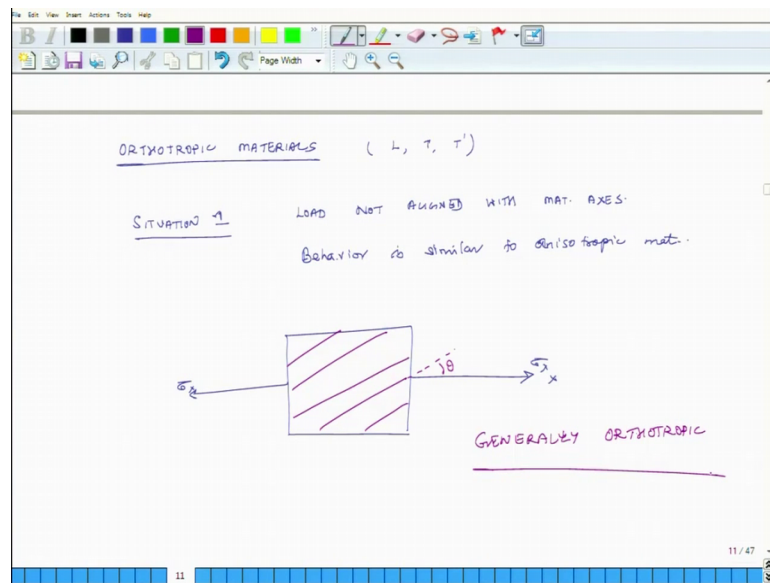 File Edit View Insert Actions Tools Help
B I
Page Width
ORTHOTROPIC MATERIALS ( L, T, T')
SITUATION 1 LOAD NOT ALIGNED WITH MAT. AXES.
Behavior is similar to anisotropic mat.
σx θ σx
x
GENERALLY ORTHOTROPIC
11 / 47
11